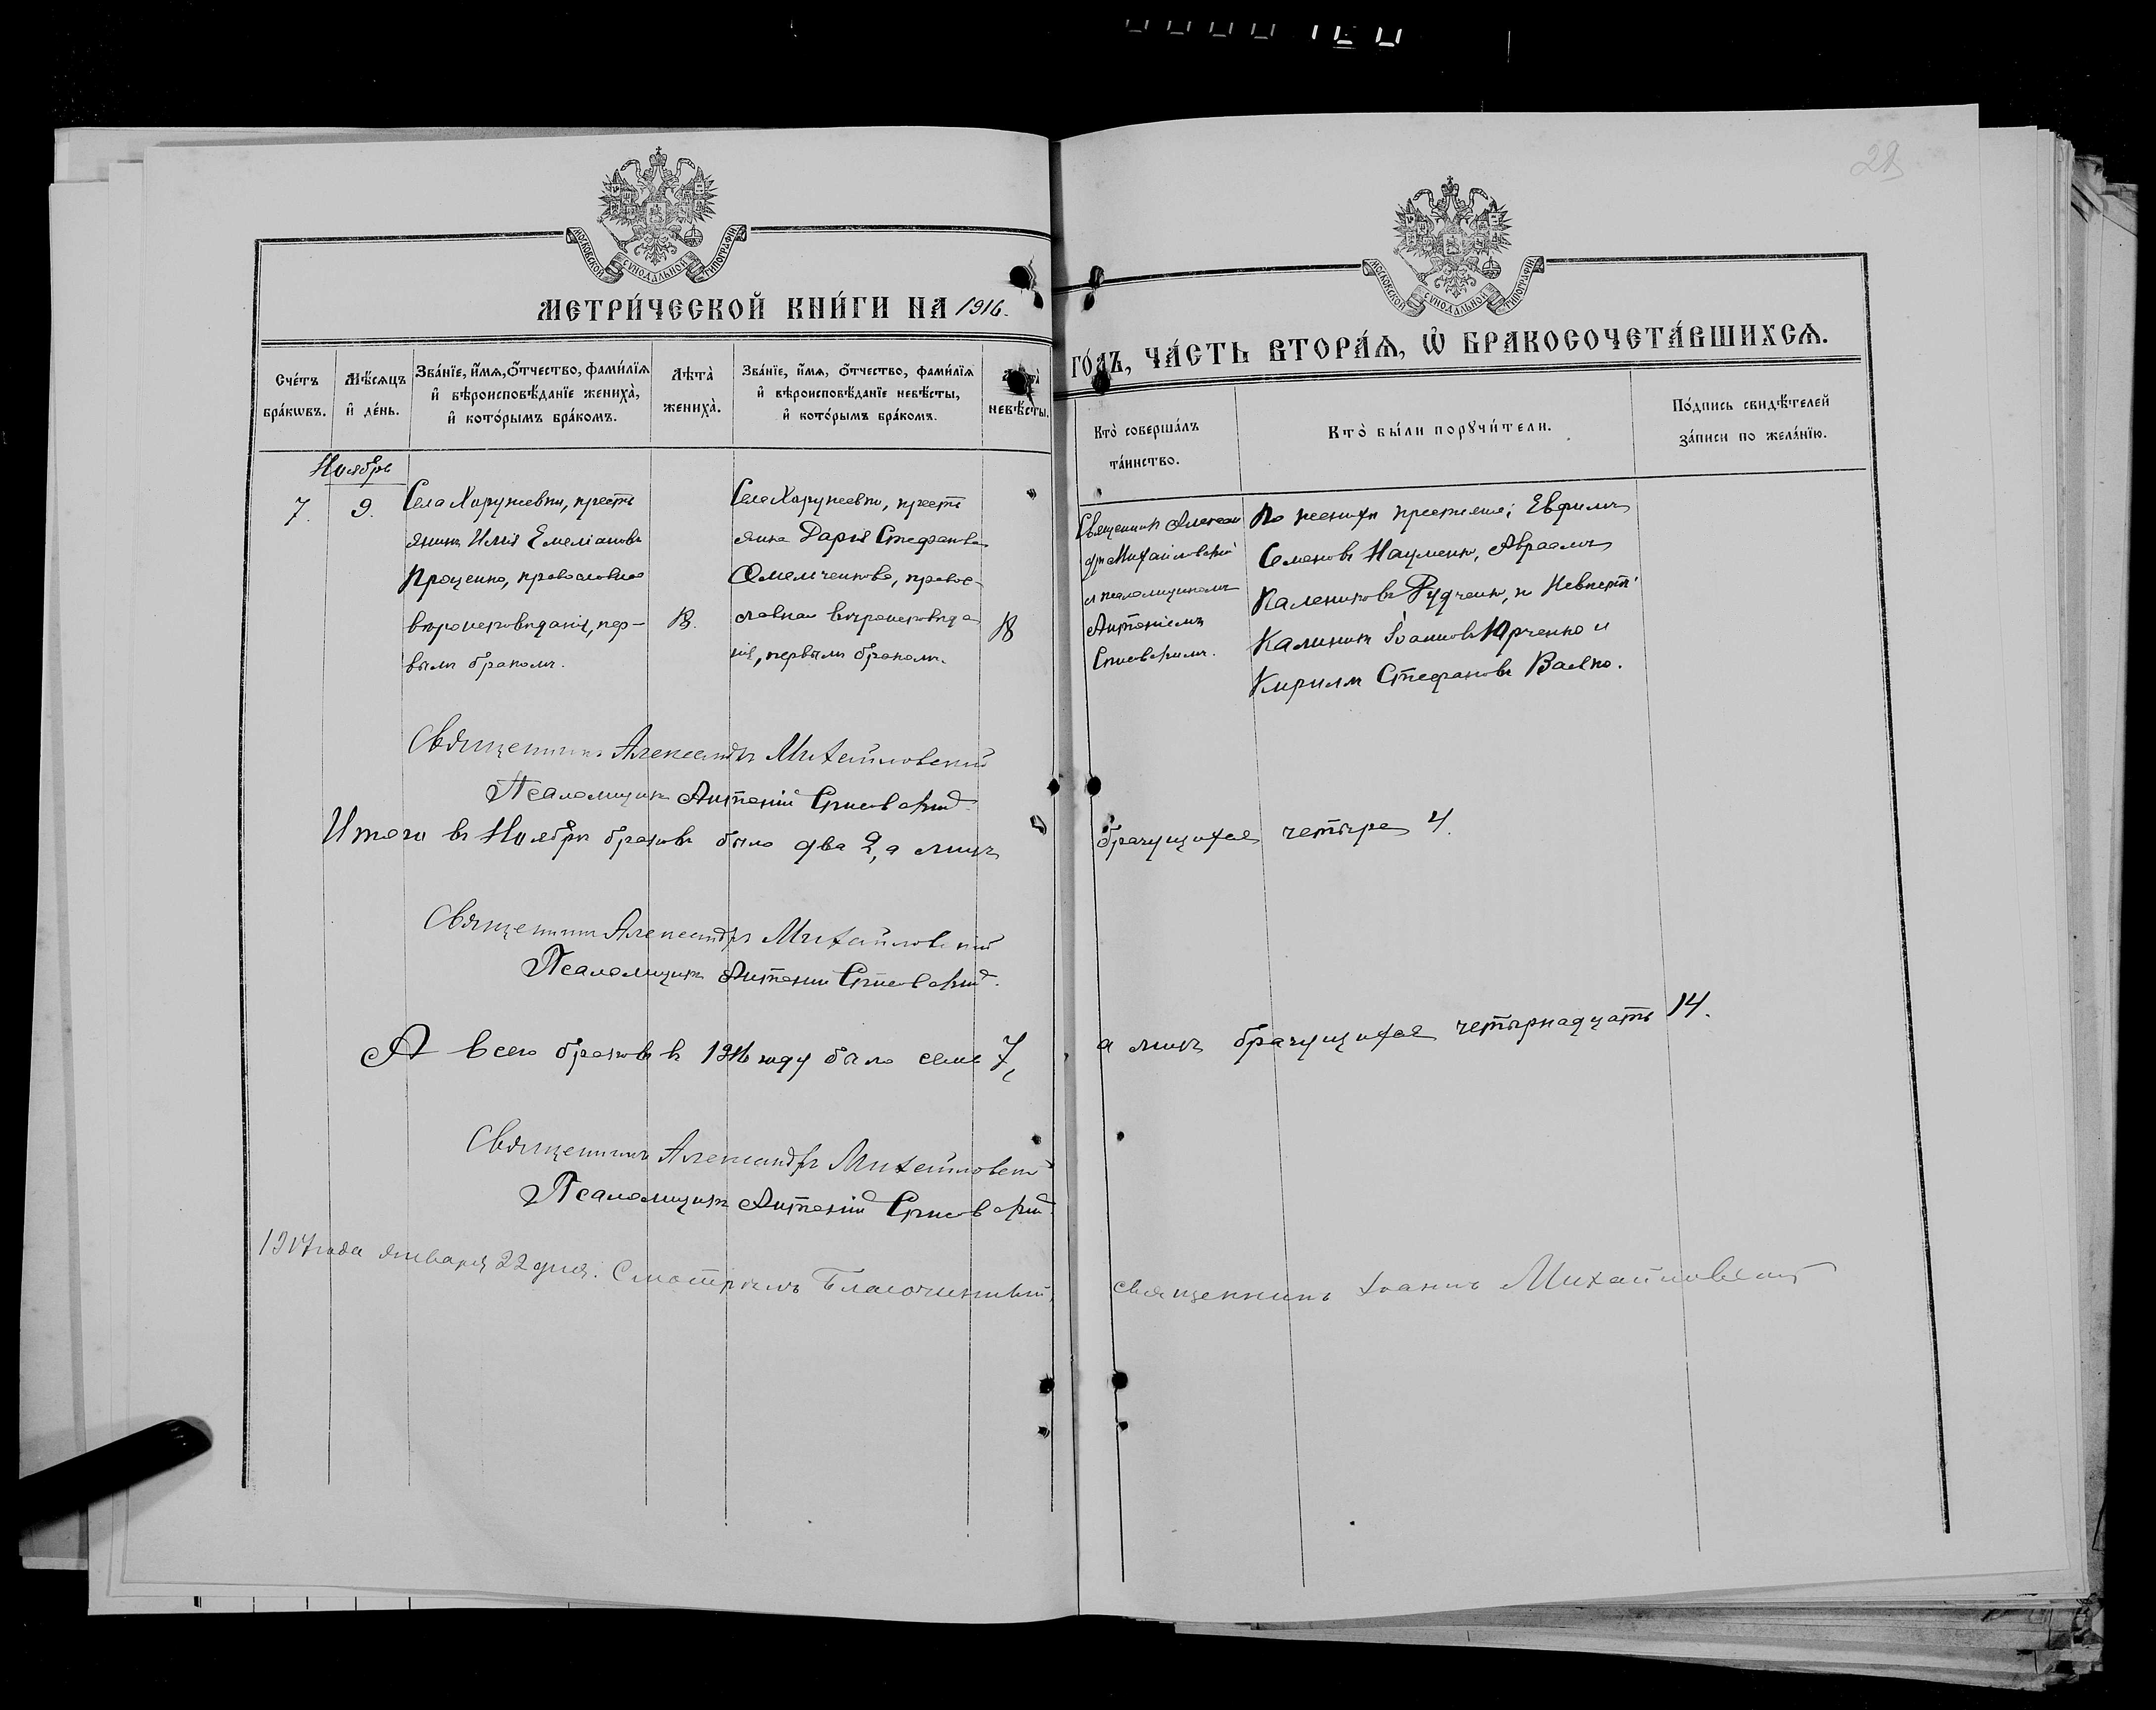 29
МОСКОВСКОЙ СУНОДАЛЬНОЙ ТИПОГРАФІИ
МОСКОВСКОЙ СУНОДАЛЬНОЙ ТИПОГРАФІИ
МЕТРИ́ЧЕСКОЙ КНИ́ГИ НА 1916.
ГО́ДЪ, ЧА́СТЬ ВТОРА́Ѧ, Ѽ БРАКОСОЧЕТА́ВШИХСѦ.
Сче́тъ бра́кѡвъ.
Мѣ́сѧцъ и҆ де́нь.
Зва́нїе, и҆́мѧ, о҆́тчество, фами́лїѧ и҆ вѣроисповѣ́данїе жениха̀, и҆ кото́рымъ бра́комъ.
Лѣта̀ жениха̀.
Зва́нїе, и҆́мѧ, о҆́тчество, фами́лїѧ и҆ вѣроисповѣ́данїе невѣ́сты, и҆ кото́рымъ бра́комъ.
невѣ́сты.
Кто̀ соверша́лъ та́инство.
Кто̀ бы́ли порꙋчи́тели.
По́дпись свидѣ́телей за́писи по жела́нїю.
Ноябрь
7. 9.
Села Харуневки, кресть
янинъ Илія Емеліановъ
Проценко, православнаго
вѣроисповѣданія, пер-
вымъ бракомъ.
18.
Села Харуневки, кресть
янка Дарія Стефанова
Омельченкова, правос-
лавнаго вѣроисповѣда
нія, первымъ бракомъ.
18
Священникъ Алексан
дръ Михайловскій
и псаломщикомъ
Антоніемъ
По женихѣ крестьяне: Евфимъ
Семеновъ Науменко, Авраамъ
Калениковъ Рудченко, по невѣстѣ:
Калиникъ Іоанновъ Юрченко и
Кириллъ Стефановъ Валько.
Священникъ Александръ Михайловскій
Псаломщикъ Антоній
Итого въ Ноябрѣ браковъ было два 2, а лицъ
брачущихся четыре 4.
Священникъ Александръ Михайловскій
Псаломщикъ Антоній
А всего браковъ въ 1916 году было семь 7,
а лицъ брачущихся четырнадцать 14.
Священникъ Александръ Михайловскій
Псаломщикъ Антоній
1917 года января 22 дня. Смотрѣлъ Благочинный,
священникъ Іоаннъ Михайловскій